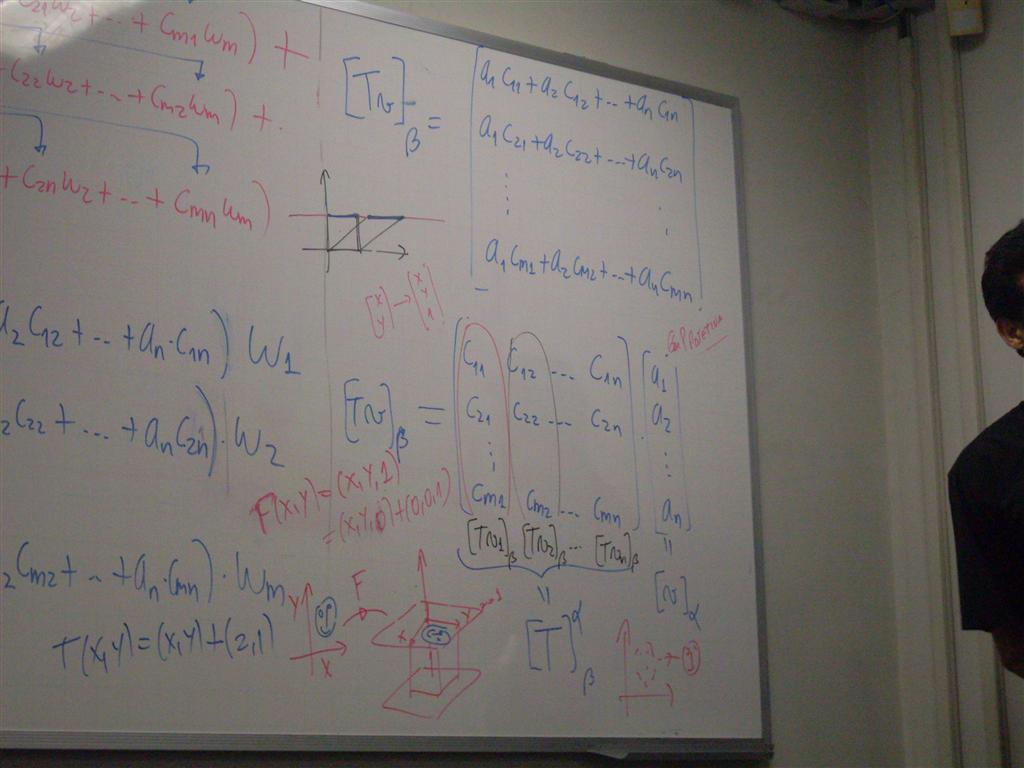 C21 w2 + ... + Cm1 wm) +
+ C22 w2 + ... + Cm2 wm) + .
+ C2n w2 + ... + Cmn wm)
a2 C12 + ... + an·C1n) w1
2 C22 + ... + an C2n)·w2
2 Cm2 + ... + an·Cmn)·wm
T(x,y) = (x,y) + (2,1)
[Tv]β = [a1 C11 + a2 C12 + ... + an C1n
a1 C21 + a2 C22 + ... + an C2n
⋮ ⋮
a1 Cm1 + a2 Cm2 + ... + an Cmn]
[x y] → [x y 1]
[Tv]β = [C11 C12 ... C1n] · [a1
C21 C22 ... C2n a2
⋮ ⋮
Cm1 Cm2 ... Cmn an]
[Tv1]β [Tv2]β ... [Tvn]β
=
[T]αβ
=
[v]α
F(x,y) = (x,y,1)
= (x,y,0) + (0,0,1)
y
x
F
x
y